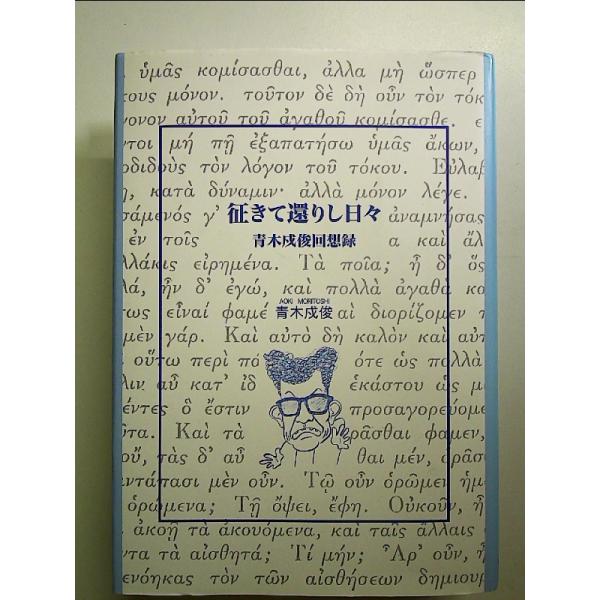 . ὑμᾶς κομίσασθαι, ἀλλα μὴ ὥσπερ
τους μόνον. τοῦτον δὲ δὴ οὖν τὸν τόκ
ονον αὐτοῦ τοῦ ἀγαθοῦ κομίσασθε. ε
τοι μή πῃ ἐξαπατήσω ὑμᾶς ἄκων,
οδιδοὺς τὸν λόγον τοῦ τόκου. Εὐλαβ
η, κατὰ δύναμιν· ἀλλὰ μόνον λέγε.
σάμενός γ’ ἀναμνήσας
征きて還りし日々
ἐν τοῖς α καὶ ἄλ
青木戍俊回想録
λάκις εἰρημένα. Τὰ ποῖα; ἦ δ’ ὅς
λά, ἦν δ’ ἐγώ, καὶ πολλὰ ἀγαθὰ κα
AOKI MORITOSHI
τως εἶναί φαμέ αἱ διορίζομεν τ
青木戍俊
μὲν γάρ. Καὶ αὐτὸ δὴ καλὸν καὶ αὐτ
οὕτω περὶ πά ότε ὡς πολλὰ
λιν αὖ κατ’ ἰδ ἑκάστου ὡς μ
έντες ὃ ἔστιν προσαγορεύομε
ῦτα. Καὶ τὰ ρᾶσθαι φαμεν,
οὔ, τὰς δ’ αὖ θαι μέν, ὁρᾶσ
ντάπασι μὲν οὖν. Τῷ οὖν ὁρῶμεν ἡμ
ὁρώμενα; Τῇ ὄψει, ἔφη. Οὐκοῦν, ἦ
ἀκοῇ τὰ ἀκουόμενα, καὶ ταῖς ἄλλαις
ντα τὰ αἰσθητά; Τί μήν; Ἆρ’ οὖν, ἦ
ενόηκας τὸν τῶν αἰσθήσεων δημιουρ